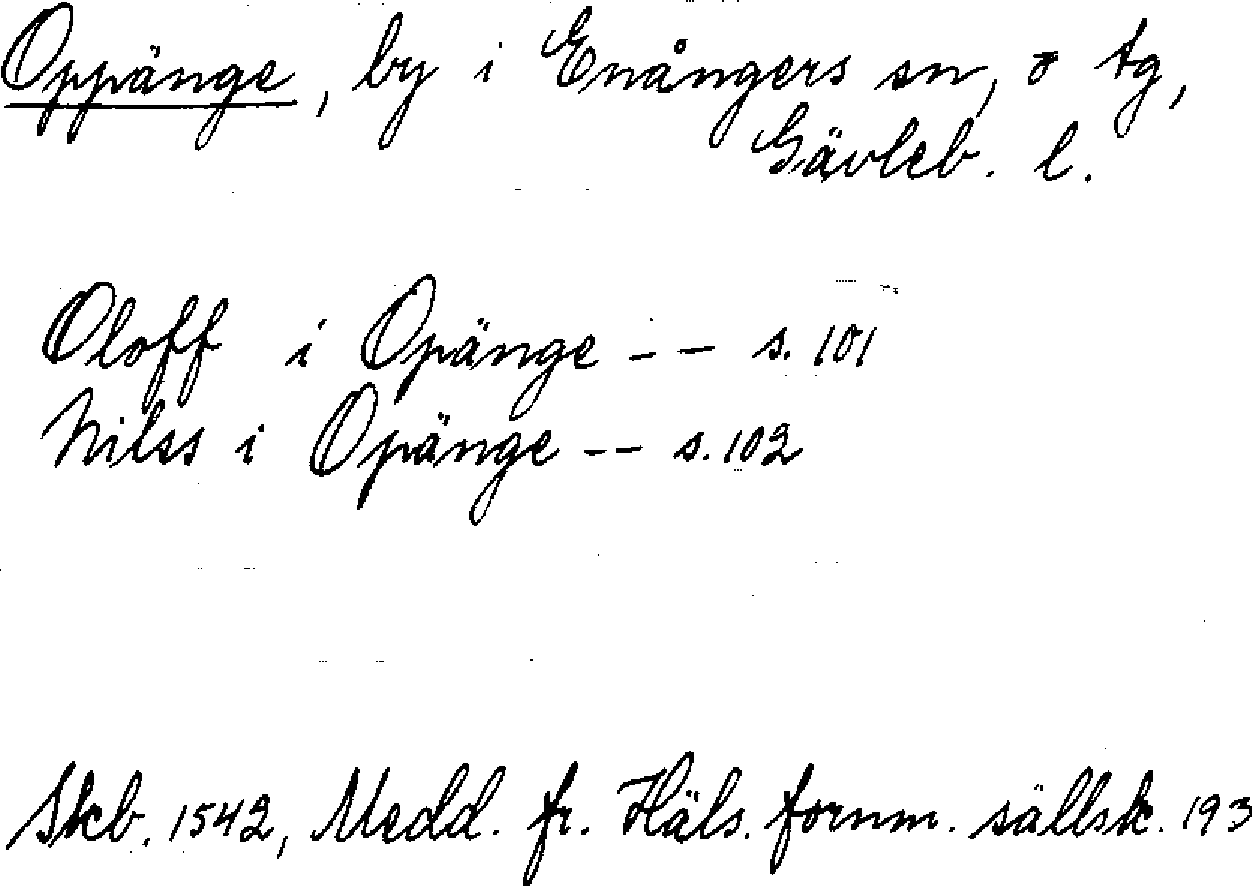 Oppänge, by i Enångers sn, o tg,
Gävleb. l.
Oloff i Opänge -- s. 101
Nilss i Opänge -- s. 102
Skb. 1542, Medd. fr. Häls. fornm. sällsk. 193